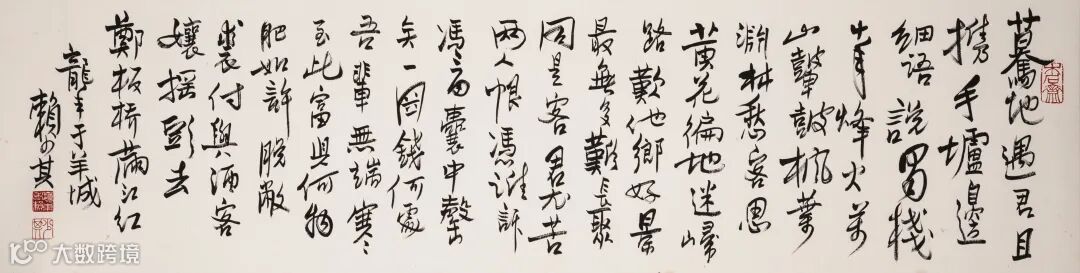 驀地遇君且
攜手壚邊
細語說蜀棧
十年烽火萬
山鼙鼓楓葉
滿林愁客思
黃花遍地迷歸
路歎他鄉好景
最無多難長聚
同是客君尤苦
兩人恨憑誰訴
囊中罄
矣錢何處
吾輩無端寒
至此富兒何物
肥如許脫敝
裘付與酒客
孃搖頭去
鄭板橋滿江紅
龍年于羊城
賴少其
大数跨境